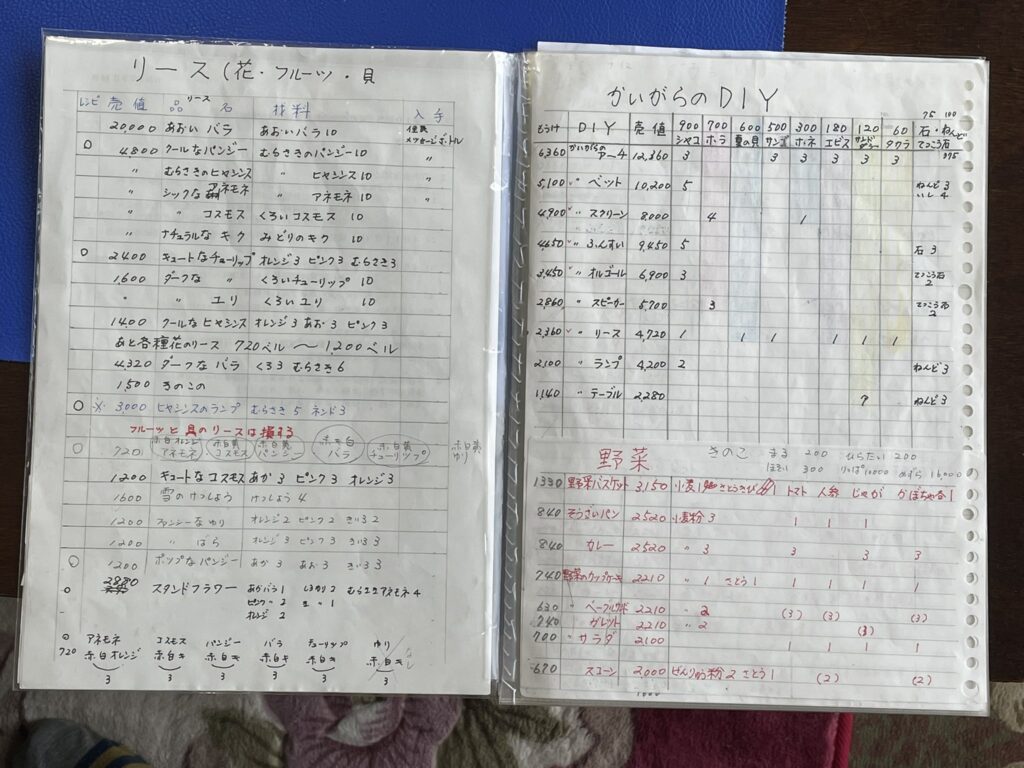 リース(花・フルーツ・貝
レシピ 売値 品 リース 名 材料 入手
20,000 あおい バラ あおいバラ10 住民 メッセージボトル
○ 4,800 クールなパンジー むらさきのパンジー10 〃
〃 むらさきのヒヤシンス 〃 ヒヤシンス10 〃
〃 シックな アネモネ 〃 アネモネ10 〃
〃 〃 コスモス くろいコスモス 10
〃 ナチュラルな キク みどりのキク 10
○ 2400 キュートなチューリップ オレンジ3 ピンク3 むらさき3
1,600 ダークな 〃 くろいチューリップ 10
〃 〃 ユリ くろいユリ 10
1400 クールなヒヤシンス オレンジ3 あお3 ピンク3
あと各種花のリース 720ベル 〜 1,200ベル
4,320 ダークな バラ くろ3 むらさき6
1,500 きのこの
○ ※ 3,000 ヒヤシンスのランプ むらさき5 ネンド3
フルーツと貝のリースは損する
○ 720 赤白オレンジ アネモネ 赤白黄 コスモス 赤白黄 パンジー 赤キ白 バラ 赤白黄 チューリップ 赤白黄 ゆり
1,200 キュートなコスモス あか3 ピンク3 オレンジ3
1600 雪のけっしょう けっしょう4
1200 ファンシーなゆり オレンジ2 ピンク2 きいろ2
1200 〃 ばら オレンジ3 ピンク3 きいろ3
○ 1200 ポップなパンジー あか3 あお3 きいろ3
2880 スタンドフラワー あかバラ1 しろユリ2 アネモネ4
ピンク〃2 〃1
オレンジ2
○ アネモネ コスモス パンジー バラ チューリップ ゆり
720 赤白オレンジ 赤白キ 赤白キ 赤白キ 赤白キ 赤白キ なし
3 3 3 3 3 3
かいがらのDIY
75 100
もうけ DIY 売値 900 シャコ 700 ホラ 600 夏の貝 500 サンゴ 300 ホネ 180 エビス 120 サンドダラー 60 タカラ 石・ねんど てっこう石 375
6,360 かいがらの アーチ 12,360 3 3 3 3 3 3
5,100 〃 ベット 10,200 5 ねんど3 いし4
4,900 〃 スクリーン 8,000 4 1
4,650 〃 ふんすい 9,450 5 石3
3,450 〃 オルゴール 6,900 3 てっこう石2
2,860 〃 スピーカー 5,700 3 てっこう石2
2,360 〃 リース 4,720 1 1 1 1 1 1
2,100 〃 ランプ 4,200 2 ねんど3
1,140 〃 テーブル 2,280 7 ねんど3
野菜 きのこ まる 200 ひらたい 200
ほそい 300 りっぱ10000 めずら 16000
1330 野菜バスケット 3,150 小麦1 さとうきび1 トマト 人参 じゃが かぼちゃ各1
840 そうざいパン 2520 小麦粉3 1 1 1
840 カレー 2520 〃 3 3 3 3
740 野菜のカップケーキ 2210 〃 1 さとう1 1 1 1 1
630 〃 ベーグルサンド 2210 〃 2 (3) (3) (3)
740 〃 ガレット 2210 〃 2 (3)
700 〃 サラダ 2100 1 1 1 1
670 スコーン 2000 ぜんりゅう粉2 さとう1 (2) (2)